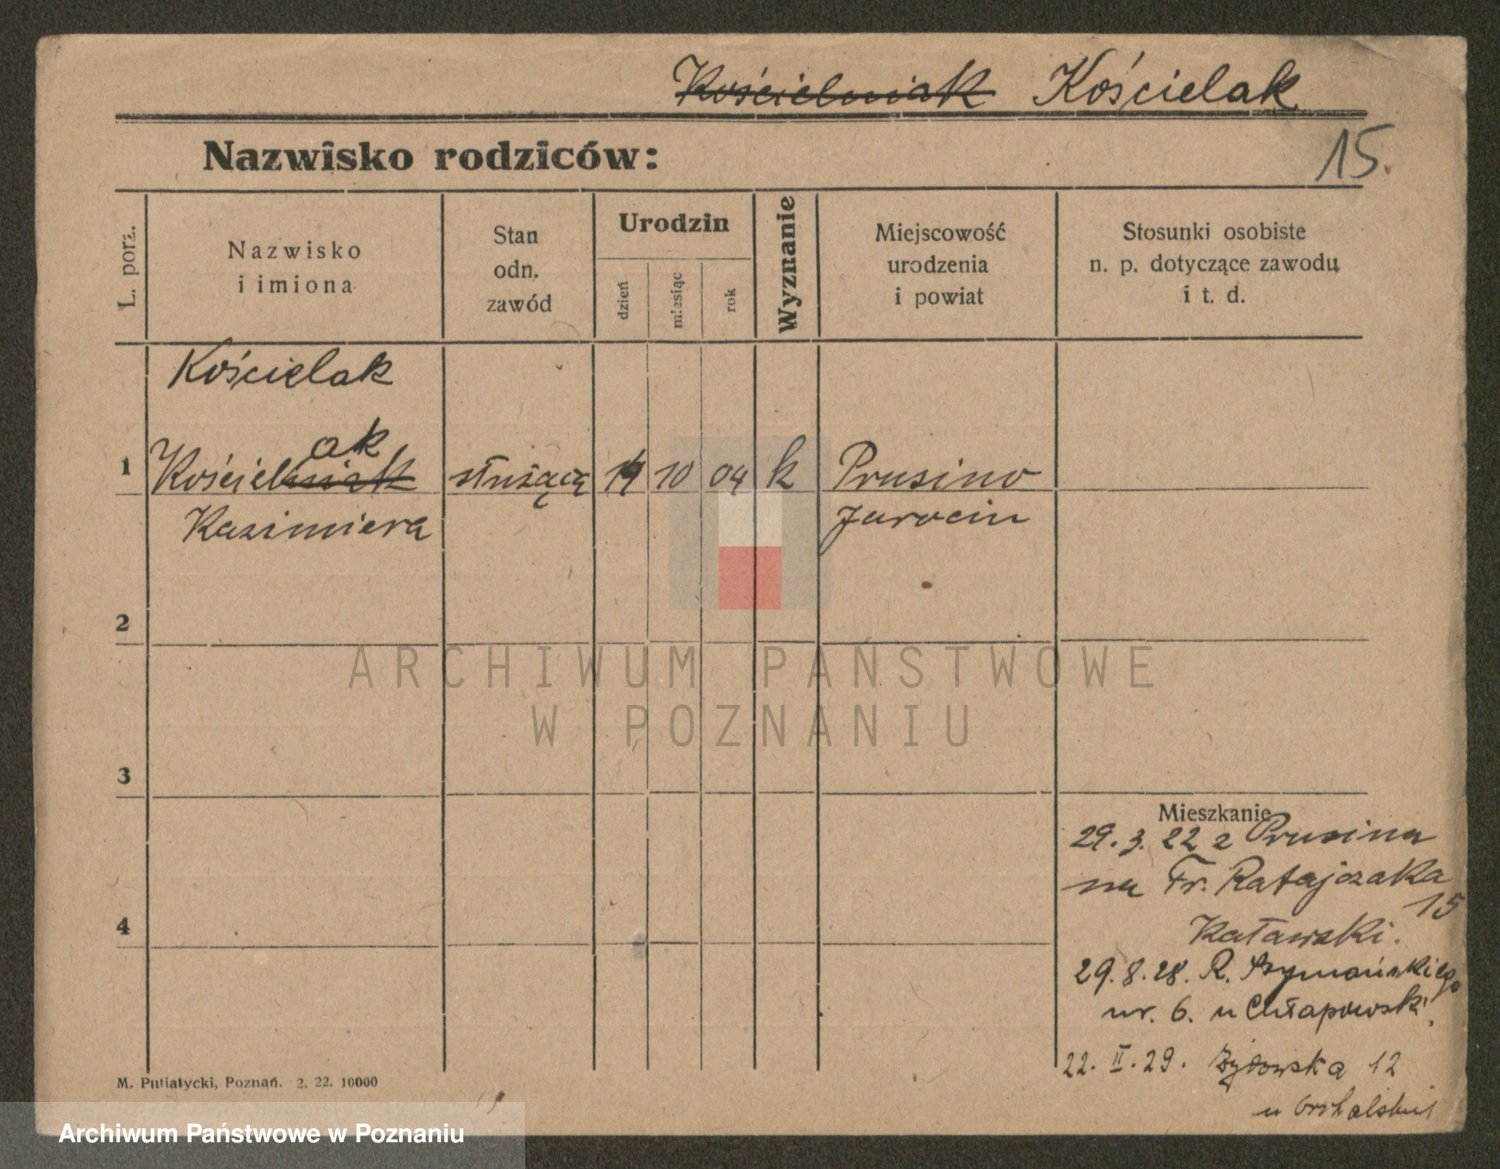 Kościelniak Kościelak
Nazwisko rodziców:
15.
L. porz.
Nazwisko
i imiona
Stan
odn.
zawód
Urodzin
dzień
miesiąc
rok
Wyznanie
Miejscowość
urodzenia
i powiat
Stosunki osobiste
n. p. dotyczące zawodu
i t. d.
Kościelak
ak
1 Kościelniak służącą 10 04 k Prusino
Kazimiera Jarocin
2
3
4
Mieszkanie
29.3.22 z Prusina
na Fr. Ratajczaka
15
Kaławski.
29.8.28. R. Szymańskiego
nr. 6. u Chłapowski.
22. II. 29. Żydowska 12
u
M. Putiatycki, Poznań. 2. 22. 10000
ARCHIWUM PAŃSTWOWE
W POZNANIU
Archiwum Państwowe w Poznaniu